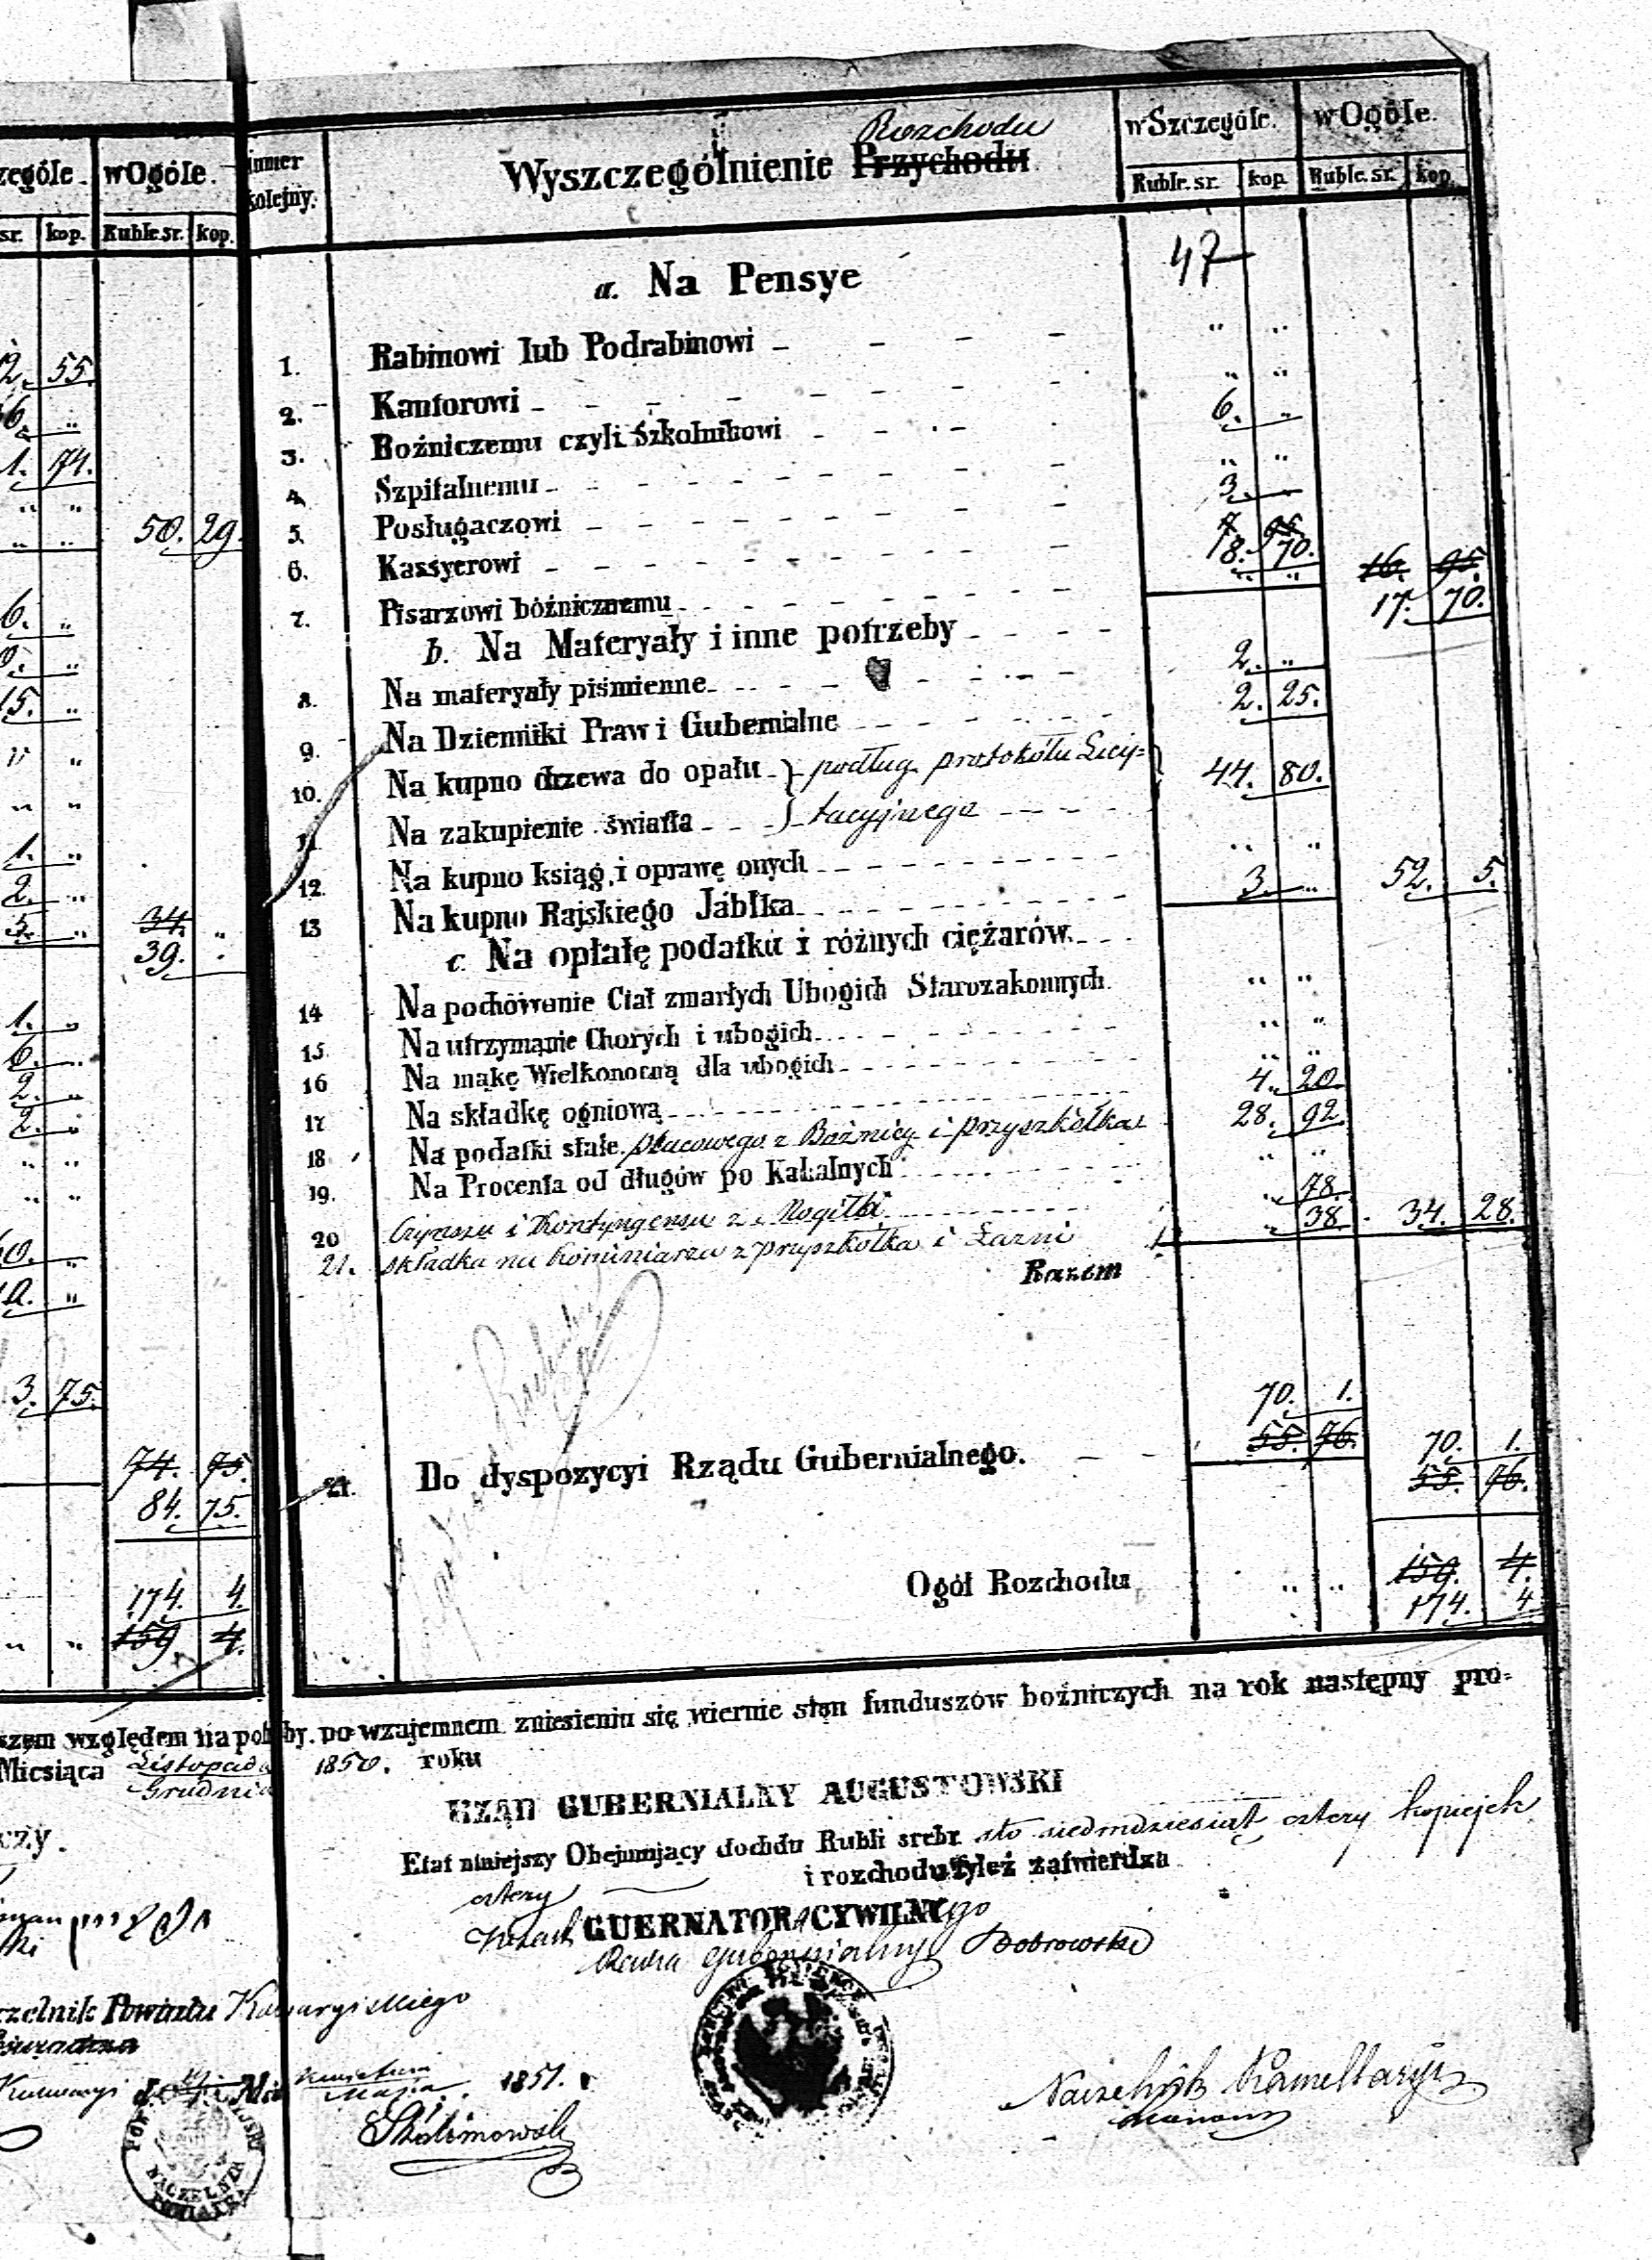 zególe. w Ogóle.
sr. kop. Ruble.sr. kop.
2. 55.
6. „
1. 74.
„ „
„ „ 50. 29.
6. „
„
15. „
„ „
„ „
1. „
2. „
5. „ 34. „
39. „
1. „
6. „
2. „
2. „
„ „
„ „
0. „
„
3. 75.
74. 75.
84. 75.
174. 4.
„ „ 159 4.
numer kolejny. Wyszczególnienie Przychodu Rozchodu w Szczególe. w Ogóle.
Ruble. sr. kop. Ruble. sr. kop.
47
a. Na Pensye
1. Rabinowi lub Podrabinowi „ „
2. Kantorowi „ „
3. Bóźniczemu czyli Szkolnikowi 6. „
4. Szpitalnemu „ „
5. Posługaczowi 3. „
6. Kassyerowi 7 95 8. 70. 16. 95.
7. Pisarzowi bóźnicznemu „ „ 17. 70.
b. Na Materyały i inne potrzeby
8. Na materyały piśmienne 2. „
9. Na Dzienniki Praw i Gubernialne 2. 25.
10. Na kupno drzewa do opału } podług protokółu Licy= 44. 80.
11. Na zakupienie światła } tacyjnego
12. Na kupno ksiąg i oprawę onych „ „
13 Na kupno Rajskiego Jabłka 3. „ 52. 5.
c. Na opłatę podatku i różnych ciężarów
14 Na pochówanie Ciał zmarłych Ubogich Starozakonnych „ „
15 Na utrzymanie Chorych i ubogich „ „
16 Na mąkę Wielkonocną dla ubogich „ „
17 Na składkę ogniową 4. 20.
18 Na podatki stałe placowego z Bóźnicy i przyszkółka 28. 92
19. Na Procenta od długów po Kahalnych „ „
20 Czynszu i Kontyngensu z Mogiłki „ 78.
21. składka na kominiarza z przyszkółka i Łazni „ 38. 34. 28.
Razem
70. 1.
55. 76. 70. 1.
21. Do dyspozycyi Rządu Gubernialnego. 55. 76.
Ogół Rozchodu „ „ 159. 4.
174. 4
szem względem na potrzeby. po wzajemnem zniesieniu się wiernie stan funduszów bóźniczych na rok następny pro-
Miesiąca Listopada Grudnia 1850. roku
RZĄD GUBERNIALNY AUGUSTOWSKI
Etat niniejszy Obejmujący dochdu Rubli srebr. sto siedmdziesiąt cztery kopiejek
cztery i rozchodu tyleż zatwierdza
GUERNATOR CYWILNY
Radca Gubernialny Dobrowolski
czelnik Powiatu Kalwaryiskiego
Kwietnia Maja 1851.
NACZELNIK POWIATU
Naczelnik Kancellaryi